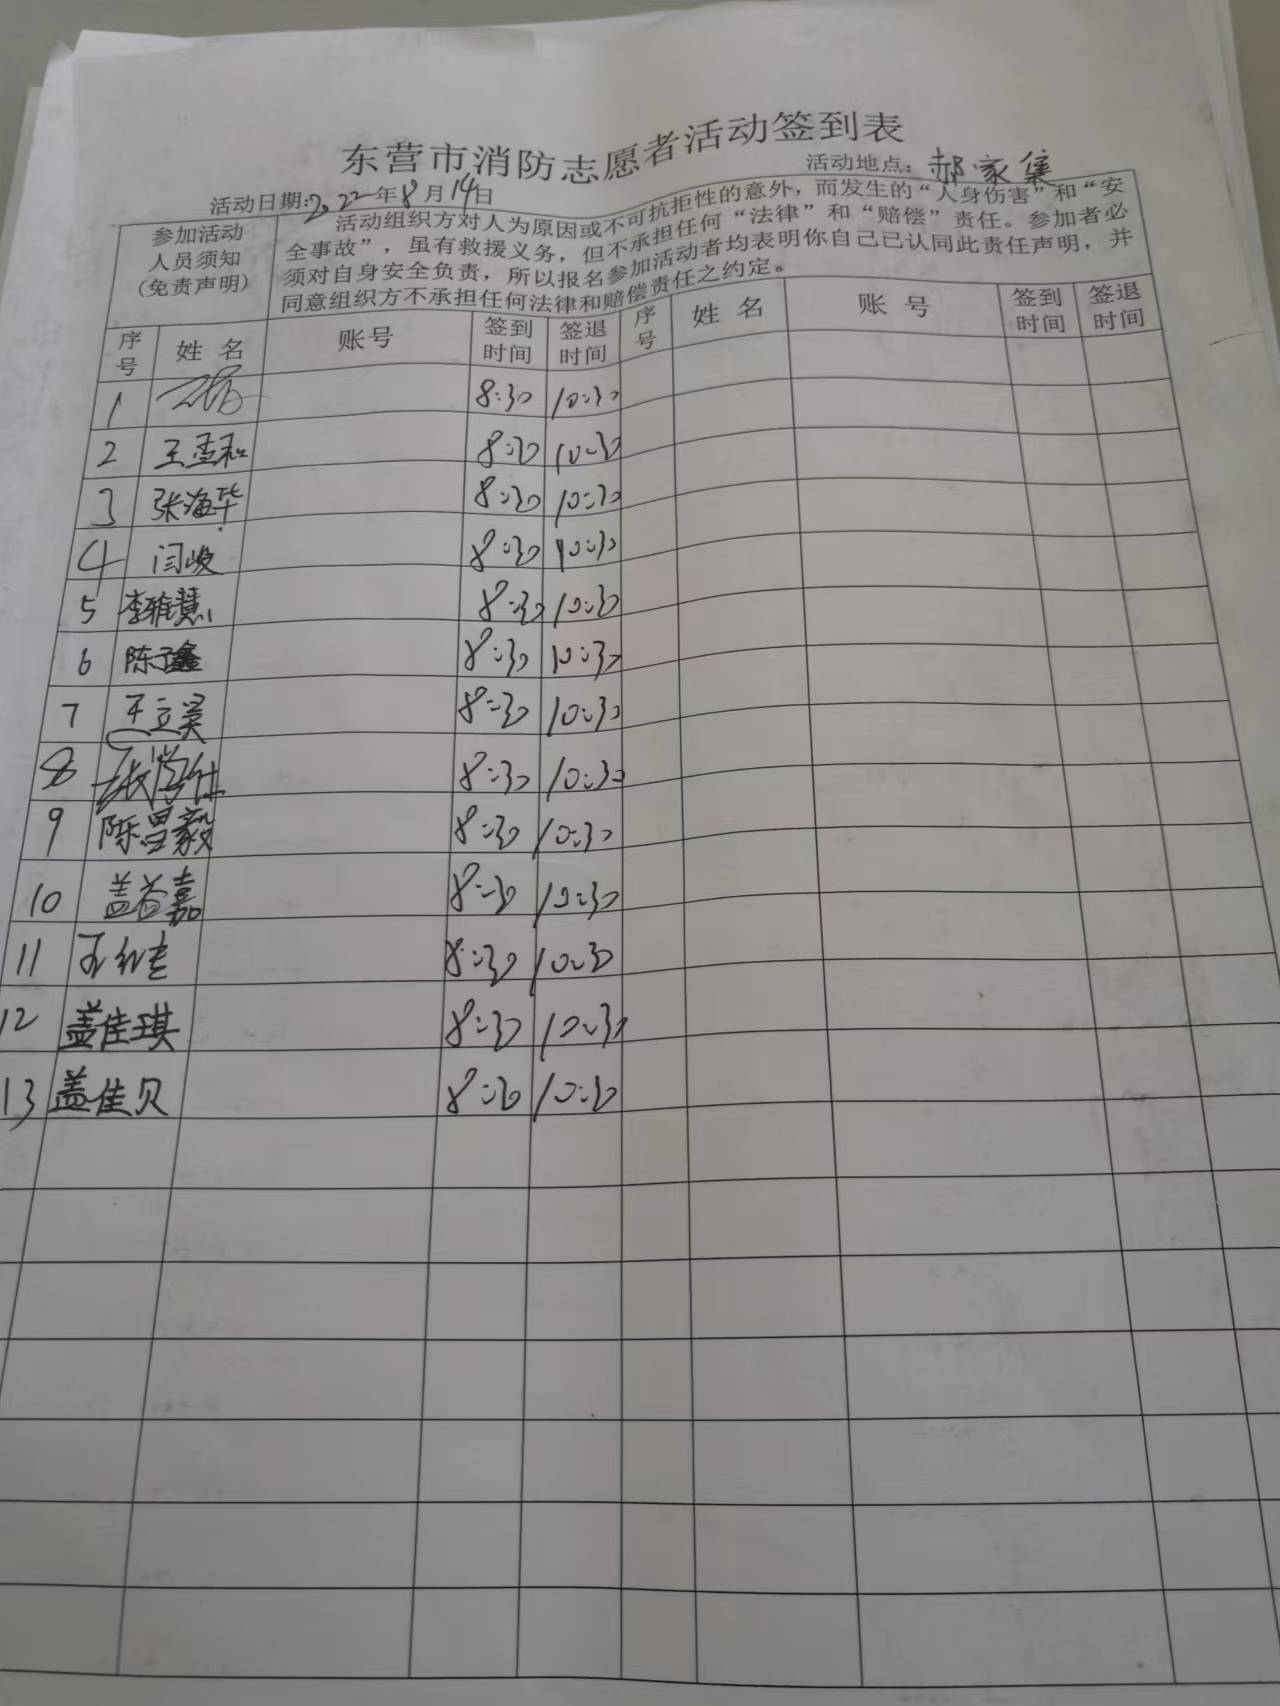 东营市消防志愿者活动签到表
活动日期:2022年8月14日 活动地点：郝家集
参加活动
人员须知
(免责声明)
活动组织方对人为原因或不可抗拒性的意外，而发生的“人身伤害”和“安
全事故”，虽有救援义务，但不承担任何“法律”和“赔偿”责任。参加者必
须对自身安全负责，所以报名参加活动者均表明你自己已认同此责任声明，并
同意组织方不承担任何法律和赔偿责任之约定。
序号 姓名 账号 签到时间 签退时间 序号 姓名 账号 签到时间 签退时间
1 8:30 10:30
2 王孟和 8:30 10:30
3 张海华 8:30 10:30
4 闫峻 8:30 10:30
5 李雅慧 8:30 10:30
6 陈子鑫 8:30 10:30
7 王立昊 8:30 10:30
8 8:30 10:30
9 陈昌毅 8:30 10:30
10 盖谷嘉 8:30 10:30
11 8:30 10:30
12 盖佳琪 8:30 10:30
13 盖佳贝 8:30 10:30